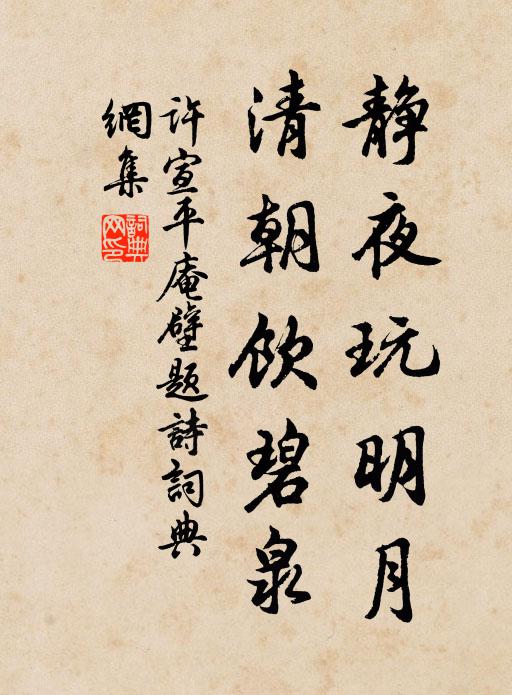 静夜玩明月
清朝饮碧泉
許宣平庵壁题詩詞典
網集
詞典网印